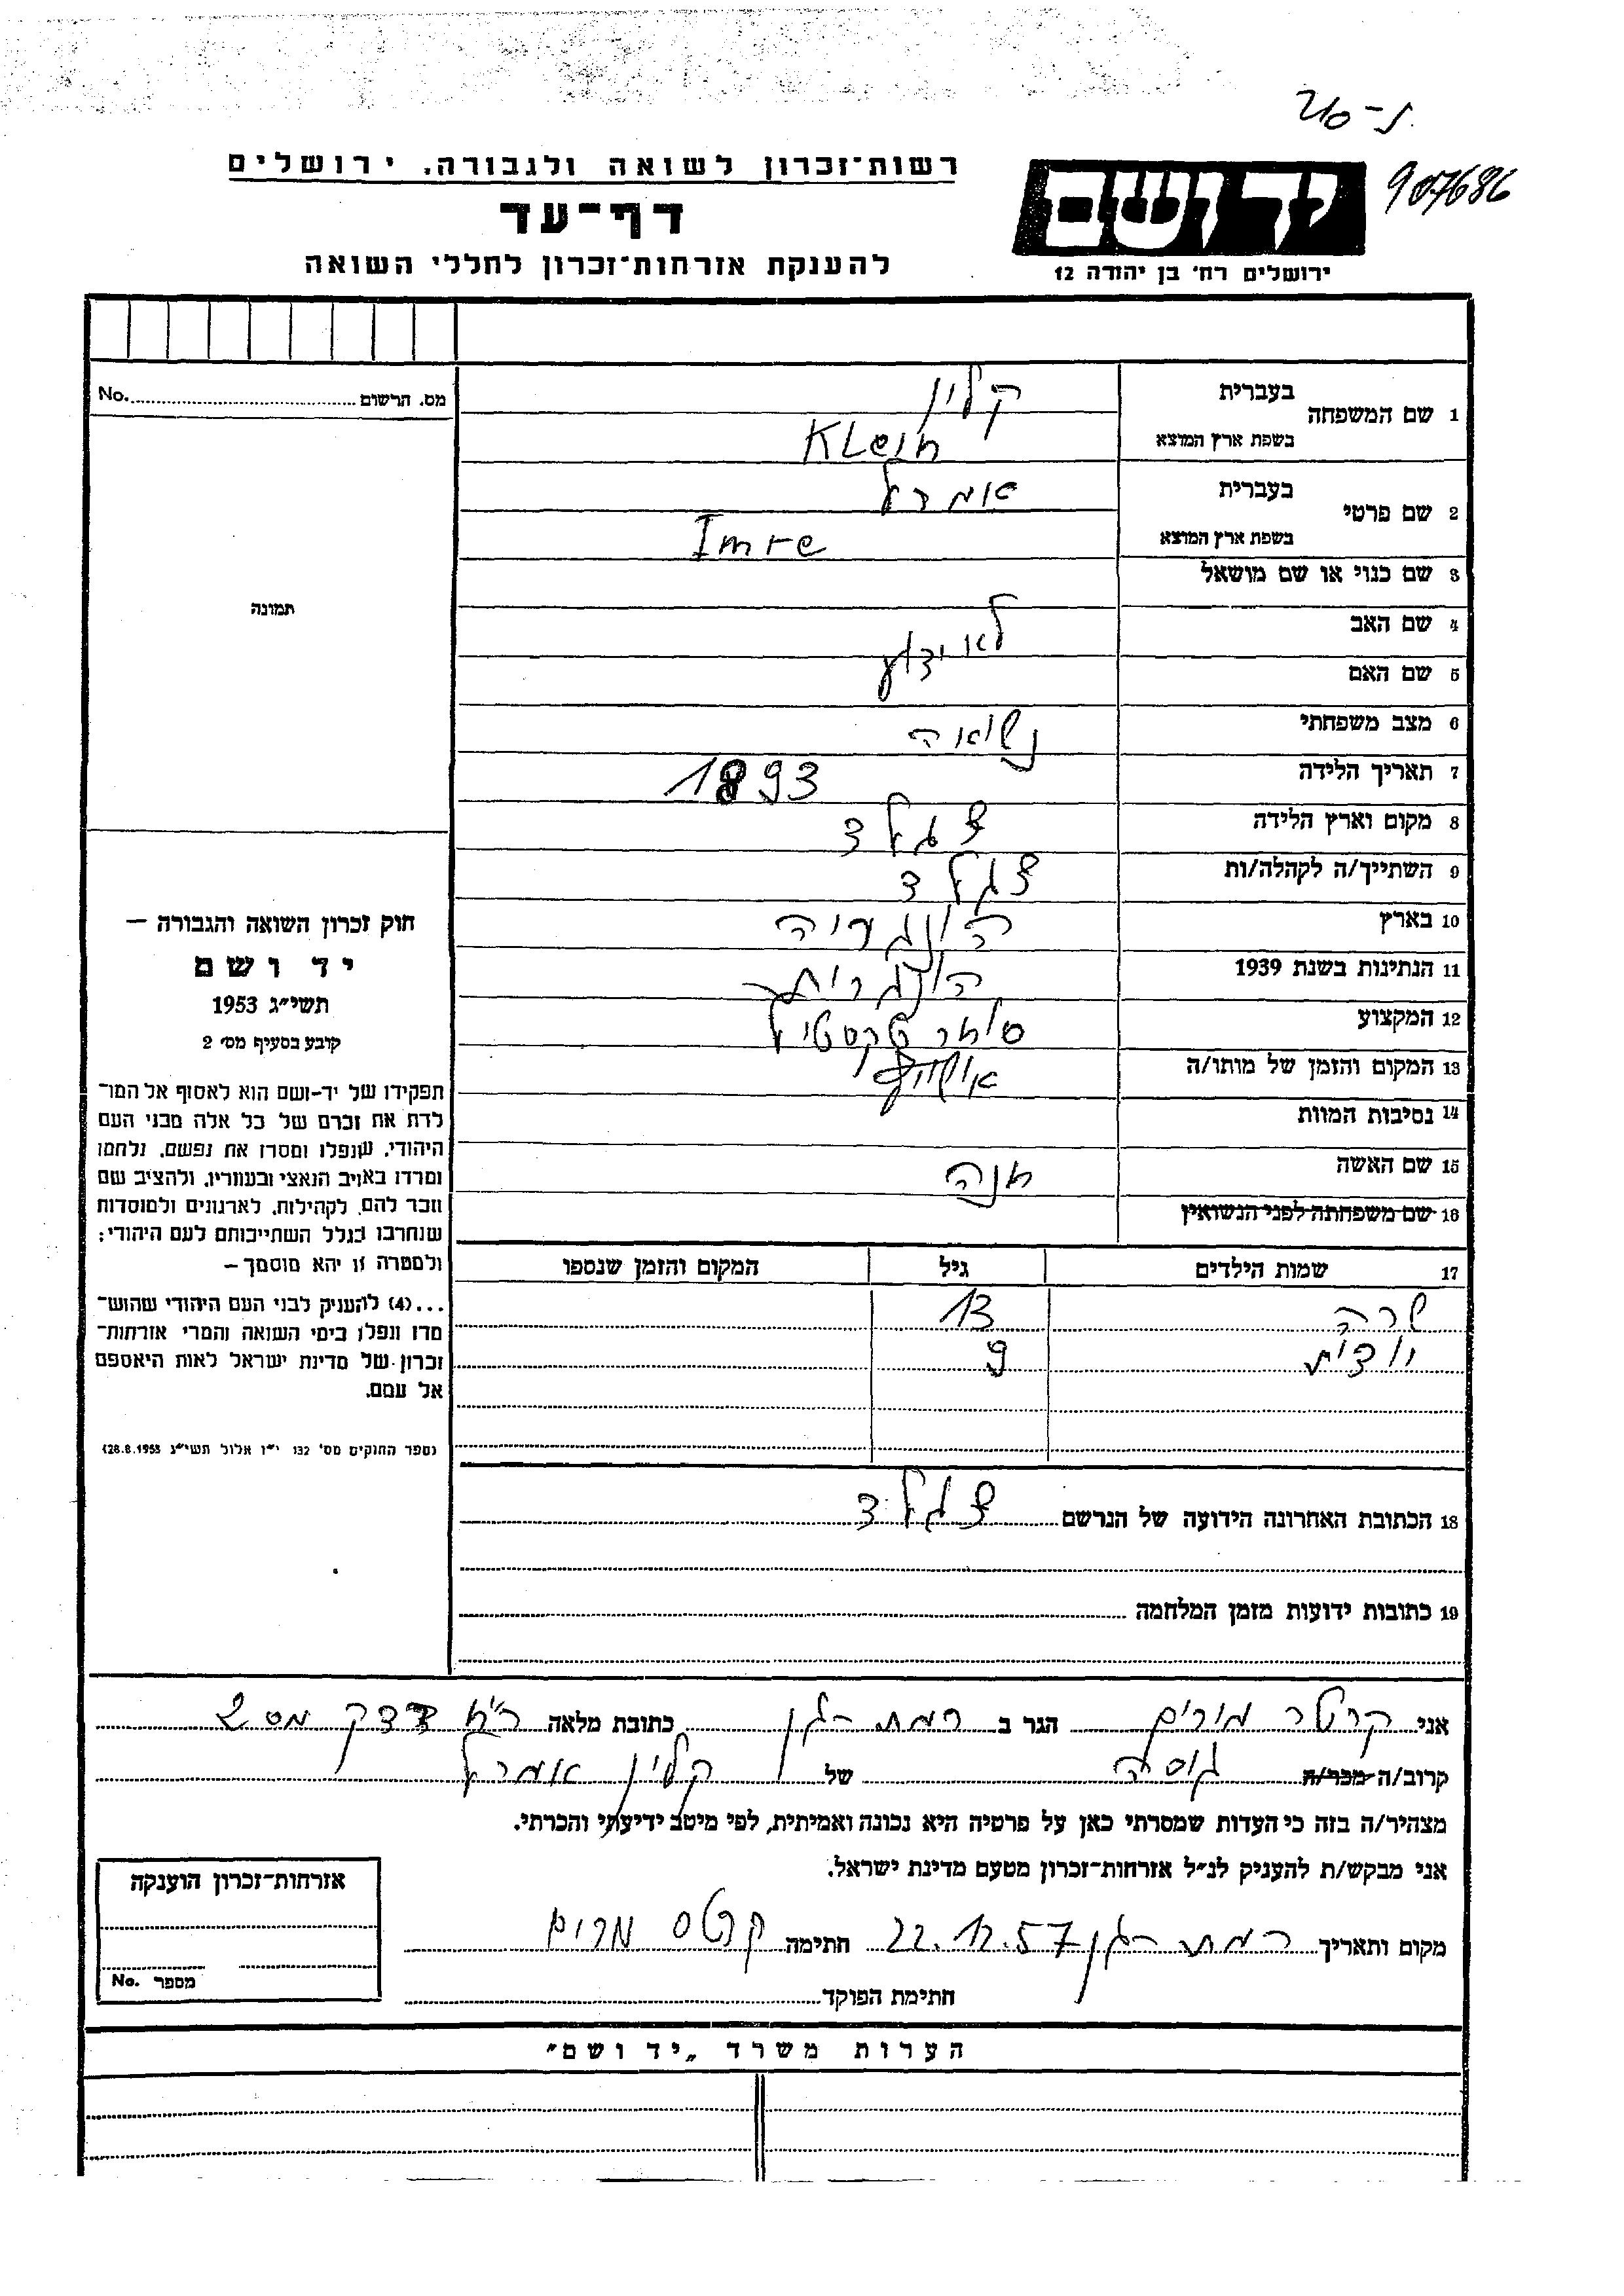 907686
רשות־זכרון לשואה ולגבורה, ירושלים
יד ושם
דף־עד
להענקת אזרחות־זכרון לחללי השואה
ירושלים רח' בן יהודה 12
מס. הרשום No.
1 שם המשפחה
בעברית
קלין
בשפת ארץ המוצא
Klein
2 שם פרטי
בעברית
אמרל
בשפת ארץ המוצא
Imre
3 שם כנוי או שם מושאל
תמונה
4 שם האב
לא ידוע
5 שם האם
6 מצב משפחתי נשואה
7 תאריך הלידה 1893
8 מקום וארץ הלידה צגלד
9 השתייך/ה לקהלה/ות צגלד
10 בארץ הונגריה
11 הנתינות בשנת 1939 הונגרית
12 המקצוע סוחר טקסטיל
13 המקום והזמן של מותו/ה
14 נסיבות המוות
15 שם האשה אנה
16 שם משפחתה לפני הנשואין
חוק זכרון השואה והגבורה —
יד ושם
תשי״ג 1953
קובע בסעיף מס׳ 2
תפקידו של יד-ושם הוא לאסוף אל המו־
לדת את זכרם של כל אלה מבני העם
היהודי, שנפלו ומסרו את נפשם, נלחמו
ומרדו באויב הנאצי ובעוזריו, ולהציב שם
וזכר להם, לקהילות, לארגונים ולמוסדות
שנחרבו בגלל השתייכותם לעם היהודי;
ולמטרה זו יהא מוסמך —
...(4) להעניק לבני העם היהודי שהוש־
מדו ונפלו בימי השואה והמרי אזרחות־
זכרון של מדינת ישראל לאות היאספם
אל עמם.
(ספר החוקים מס׳ 132 י״ז אלול תשי״ג 28.8.1953)
17 שמות הילדים גיל המקום והזמן שנספו
שרה 13
יודית 9
18 הכתובת האחרונה הידועה של הנרשם צגלד
19 כתובות ידועות מזמן המלחמה
אני מרים הגר ב רמת-גן כתובת מלאה מס 2
קרוב/ה מכר/ה גיסה של קלין אמרל
מצהיר/ה בזה כי העדות שמסרתי כאן על פרטיה היא נכונה ואמיתית, לפי מיטב ידיעתי והכרתי.
אני מבקש/ת להעניק לנ״ל אזרחות־זכרון מטעם מדינת ישראל.
מקום ותאריך רמת-גן 22.12.57 חתימה מרים
חתימת הפוקד
אזרחות־זכרון הוענקה
מספר No.
הערות משרד „יד ושם״